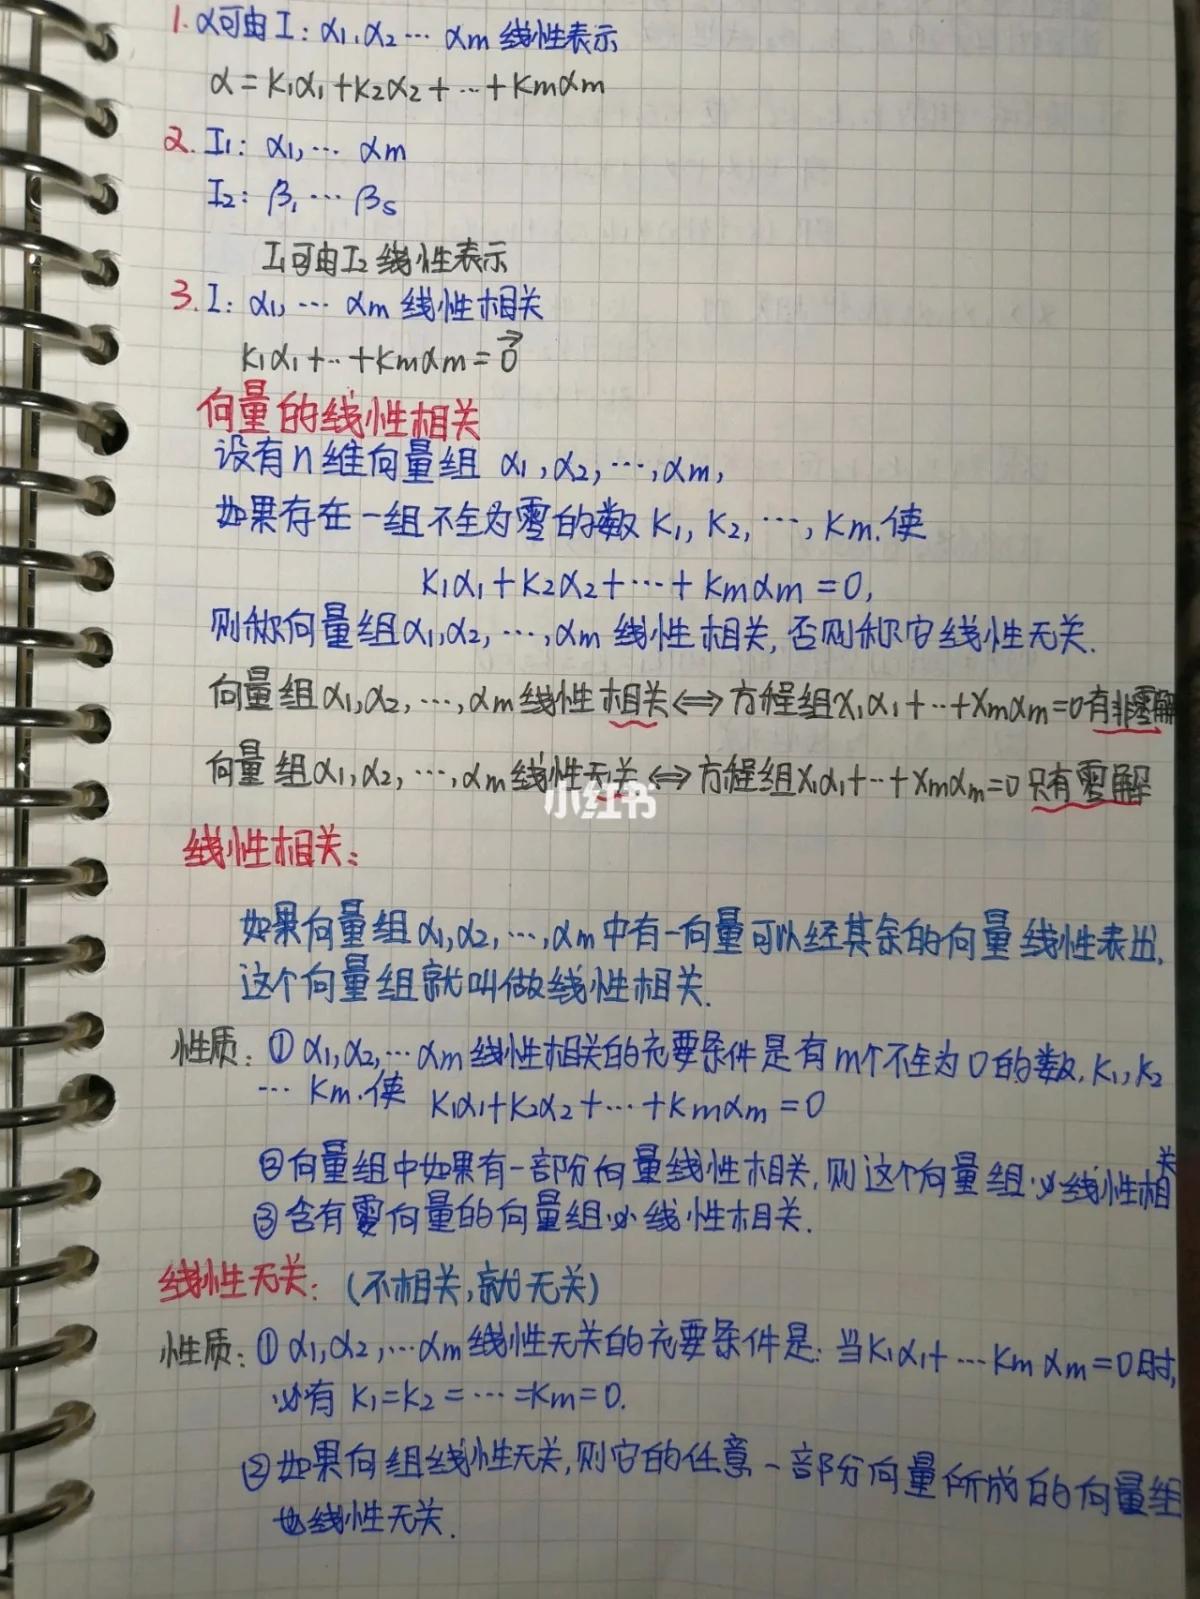 1. α可由I: α1, α2 … αm 线性表示
α = k1α1 + k2α2 + … + kmαm
2. I1: α1, … αm
I2: β1 … βs
I1可由I2 线性表示
3. I: α1, … αm 线性相关
k1α1 + … + kmαm = 0⃗
向量的线性相关
设有n维向量组 α1, α2, …, αm,
如果存在一组不全为零的数 k1, k2, …, km. 使
k1α1 + k2α2 + … + kmαm = 0,
则称向量组α1, α2, …, αm 线性相关, 否则称它线性无关.
向量组α1, α2, …, αm线性相关⇔方程组x1α1 + … + xmαm = 0有非零解
向量组α1, α2, …, αm线性无关⇔方程组x1α1 + … + xmαm = 0 只有零解
小红书
线性相关:
如果向量组α1, α2, …, αm中有一向量可以经其余的向量线性表出,
这个向量组就叫做线性相关.
性质: ① α1, α2, … αm线性相关的充要条件是有m个不全为0的数, k1, k2
… km. 使 k1α1 + k2α2 + … + kmαm = 0
②向量组中如果有一部分向量线性相关, 则这个向量组必线性相关
③含有零向量的向量组必线性相关.
线性无关: (不相关, 就无关)
性质: ① α1, α2, … αm线性无关的充要条件是: 当k1α1 + … kmαm = 0时,
必有 k1 = k2 = … = km = 0.
②如果向组线性无关, 则它的任意一部分向量所成的向量组
也线性无关.